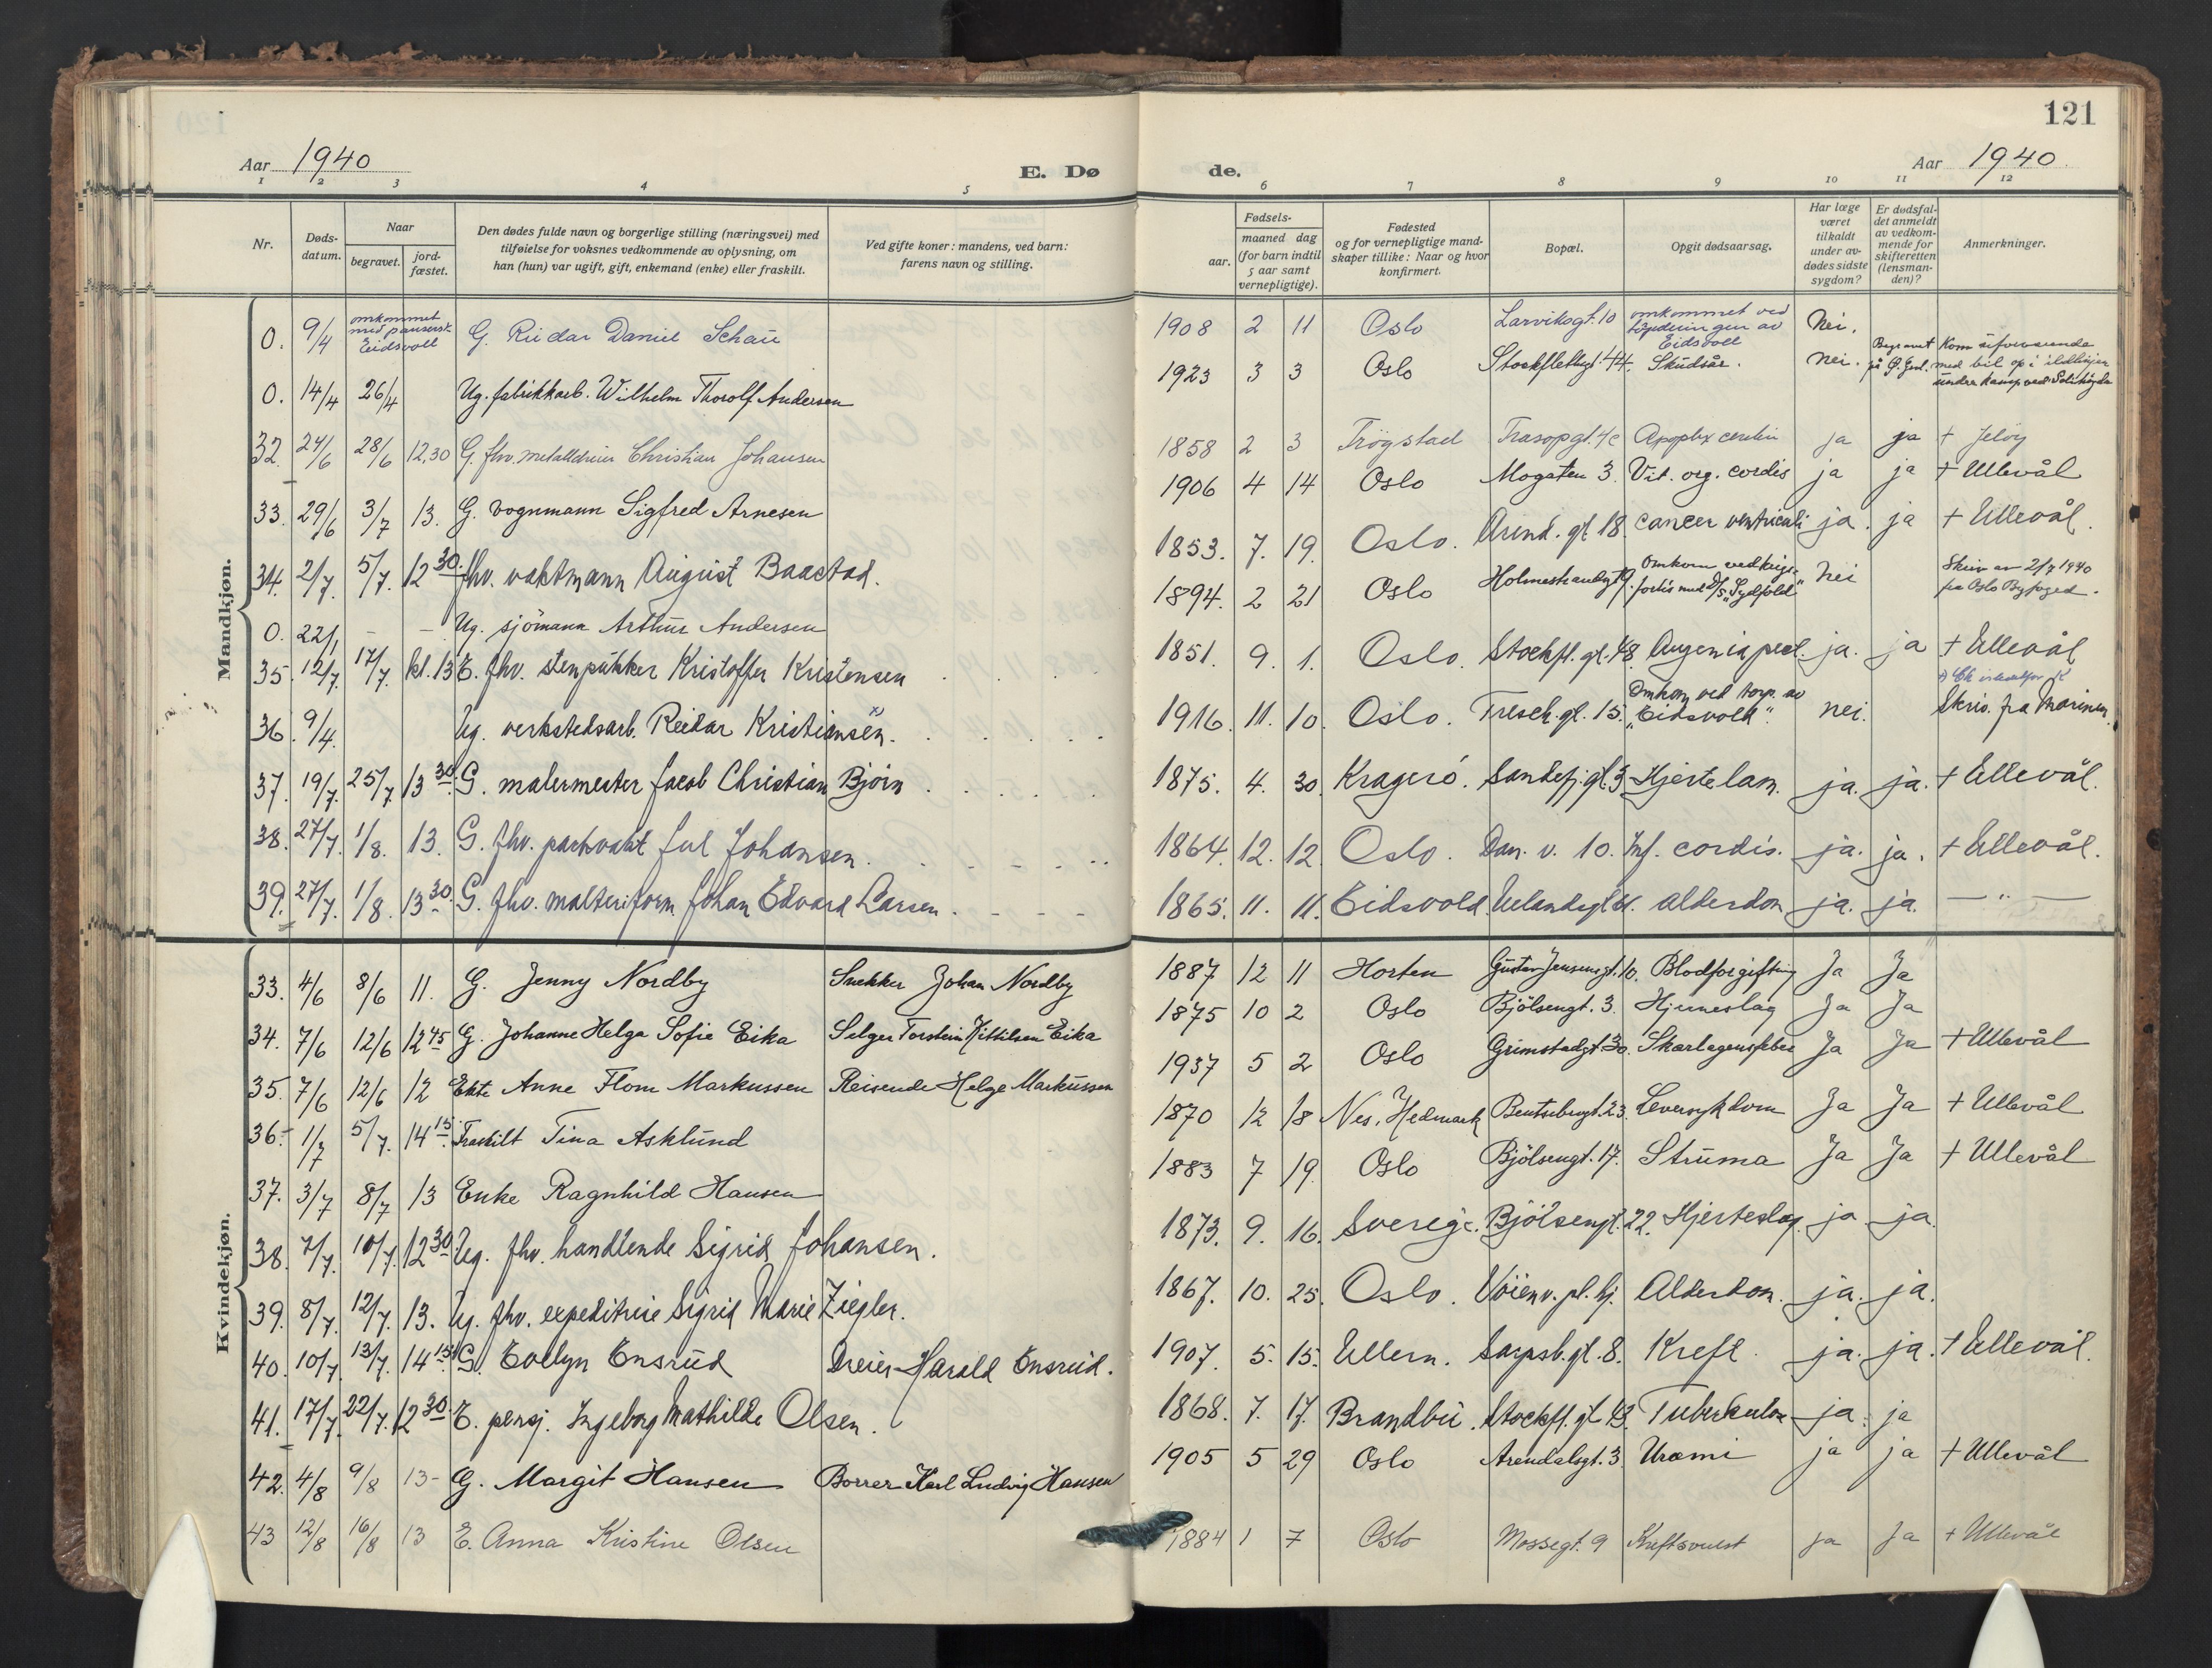 121
Aar 1940
E. Dø
de.
Aar 1940
1 2 3 4 5 6 7 8 9 10 11 12
Nr.
Døds-
datum.
Naar
begravet.
jord-
fæstet.
Den dødes fulde navn og borgerlige stilling (næringsvei) med
tilføielse for voksnes vedkommende av oplysning, om
han (hun) var ugift, gift, enkemand (enke) eller fraskilt.
Ved gifte koner: mandens, ved barn:
farens navn og stilling.
Fødsels-
aar.
maaned dag
(for barn indtil
5 aar samt
vernepligtige).
Fødested
og for vernepligtige mand-
skaper tillike: Naar og hvor
konfirmert.
Bopæl.
Opgit dødsaarsag.
Har læge
været
tilkaldt
under av-
dødes sidste
sygdom?
Er dødsfal-
det anmeldt
av vedkom-
mende for
skifteretten
(lensman-
den)?
Anmerkninger.
Mandkjøn.
0. 9/4 omkommet med pansersk. Eidsvoll G. Reidar Daniel Schau 1908 2 11 Oslo Larviksgt. 10 omkommet ved torpederingen av Eidsvoll Nei.
0. 14/4 26/4 Ug. fabrikkarb. Wilhelm Thorolf Andersen 1923 3 3 Oslo Stockflethsgt. 44. Skudsår. Nei. Begravet på Ø. Grl. Kom uforvarende med bil op i ildlinjen under kamp ved Solihøgda
32. 24/6 28/6 12,30 G. fhv. metalldreier Christian Johansen 1858 2 3 Trøgstad Trasopgt. 4c Apoplex cerebri ja ja + Jeløy
33. 29/6 3/7 13. G. vognmann Sigfred Arnesen 1906 4 14 Oslo Mogaten 3. Vit. org. cordis ja ja + Ullevål
34. 2/7. 5/7. 12 30. fhv. vaktmann August Baastad. 1853. 7. 19. Oslo. Arend. gt 18. cancer ventriculi ja. ja + Ullevål.
0. 22/1 - - Ug. sjömann Arthur Andersen 1894. 2 21 Oslo Holmestrandgt 9. Omkom ved krigs- forlis med D/S "Sydfold" Nei Skriv av 2/7 1940 fra Oslo Byfoged.
35. 12/7. 17/7. kl. 13 E. fhv. stenpukker Kristoffer Kristensen 1851. 9. 1. Oslo. Stockfl. gt. 48 Angenia pect. ja. ja + Ullevål
36. 9/4. Ug. verkstedsarb. Reidar Kristiansen. x) 1916. 11. 10. Oslo. Tresch. gt. 15. Omkom ved torp. av "Eidsvold". nei. Skriv. fra Marinen.
37. 19/7. 25/7. 13 30. G. malermester Jacob Christian Bjørn 1875. 4. 30. Kragerö. Sandefj. gt. 3 Hjertelam. ja. ja. + Ullevål.
38. 27/7. 1/8. 13. G. fhv. parkvakt Jul Johansen. 1864. 12. 12. Oslo. Dan. v. 10. Inf. cordis. ja. ja. + Ullevål.
39. 27/7. 1/8. 13 30. G. fhv. malteriform Johan Edvard Larsen. 1865. 11. 11. Eidsvold. Uelandsgt 61. alderdom ja. ja. — " —
Kvindekjøn.
33. 4/6 8/6 11. G. Jenny Nordby Snekker Johan Nordby 1887 12 11 Horten Gustav Jensensgt. 10. Blodforgiftning Ja Ja
34. 7/6 12/6 12 45 G. Johanne Helga Sofie Eika Selger Torstein Kittilsen Eika 1875 10 2 Oslo Bjölsengt. 3. Hjerneslag Ja Ja
35. 7/6 12/6 12 Ekte Anne Flom Markussen Reisende Helge Markussen 1937 5 2 Oslo Grimstadgt 30. Skarlagensfeber Ja Ja + Ullevål
36. 1/7 5/7. 14 15. Fraskilt Tina Asklund 1870 12 18 Nes, Hedmark Bentsebrugt. 23. Leversykdom Ja Ja + Ullevål
37. 3/7 8/7 13 Enke Ragnhild Hansen 1883 7 19 Oslo Bjölsengt. 17. Struma Ja Ja + Ullevål
38. 7/7. 10/7. 12 30. Ug. fhv. handlende Sigrid Johansen. 1873. 9. 16. Sverige. Bjölsengt. 22. Hjerteslag. ja ja.
39. 8/7. 12/7. 13. Ug. fhv. expeditrise Sigrid Marie Ziegler. 1867. 10. 25. Oslo. Vöienv. pl. hj. Alderdom. ja. ja.
40. 10/7. 13/7. 14 15. G. Evelyn Ensrud Dreier Harald Ensrud. 1907. 5. 15. Ullern. Sarpsb. gt. 8. Kreft. ja. ja. + Ullevål.
41. 17/7. 22/7. 12 30. E. pensj. Ingeborg Mathilde Olsen. 1868. 7. 17. Brandbu. Stockfl. gt 43. Tuberkulose ja. ja
42. 4/8 9/8 13- G. Margit Hansen Borrer Karl Ludvig Hansen 1905 5 29 Oslo Arendalsgt. 3. Uræmi ja ja + Ullevål
43 12/8 16/8 13 E. Anna Kristine Olsen 1884 1 7 Oslo Mossegt. 9 Kreftsvulst ja Ja + Ullevål